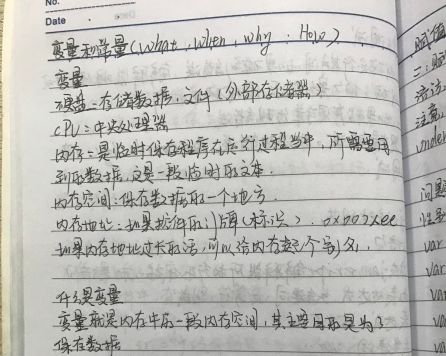 No.
Date
变量和常量(What, When, why, How)
变量
硬盘=存储数据,文件(外部存储器)
CPU=中央处理器
内存=是临时保存程序在运行过程当中,所需要用
到的数据,文是一段临时的文本.
内存空间:保存数据的一个地方.
内存地址:如果 的门牌(标识). 0x
如果内存地址过长的话,可以给内存起个别名,
什么是变量
变量就是内存中的一段内存空间,其主要目的是为了
保存数据
赋值
二:赋
语法
注意
unde
问题
var
var
var
var